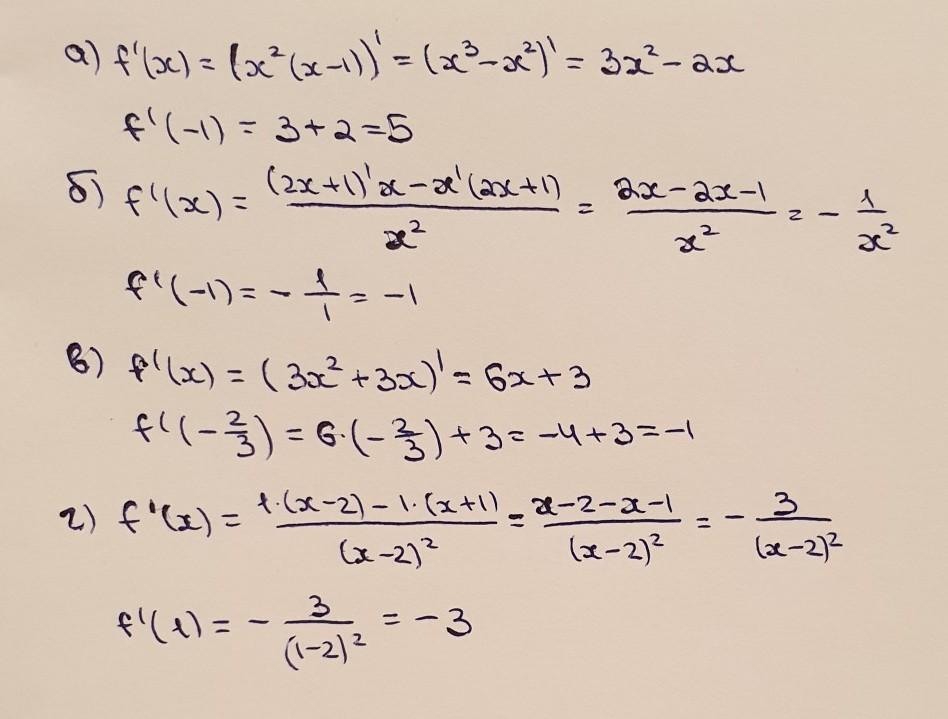 а) f'(x) = (x²(x-1))' = (x³-x²)' = 3x²-2x
f'(-1) = 3+2=5
б) f'(x) = ((2x+1)'x-x'(2x+1))/x² = (2x-2x-1)/x² = -1/x²
f'(-1) = -1/1 = -1
в) f'(x) = (3x²+3x)' = 6x+3
f'(-2/3) = 6·(-2/3)+3 = -4+3=-1
г) f'(x) = (1·(x-2)-1·(x+1))/(x-2)² = (x-2-x-1)/(x-2)² = -3/(x-2)²
f'(1) = -3/(1-2)² = -3